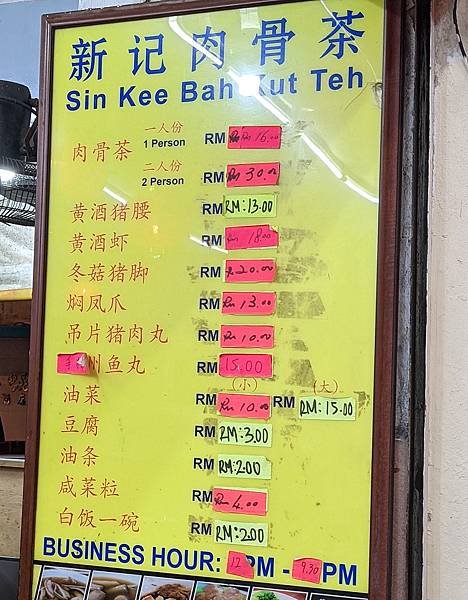 新记肉骨茶
Sin Kee Bah Kut Teh
肉骨茶 一人份 1 Person RM Rm 16.00
二人份 2 Person RM Rm 30.00
黄酒猪腰 RM RM:13.00
黄酒虾 RM Rm 18.00
冬菇猪脚 RM R.20.00
焖凤爪 RM Rm 13.00
吊片猪肉丸 RM Rm 10.00
州鱼丸 RM 15.00
(小) (大)
油菜 RM Rm 10.00 RM RM:15.00
豆腐 RM RM:3.00
油条 RM RM:2.00
咸菜粒 RM Rm 4.00
白饭一碗 RM RM:2.00
BUSINESS HOUR: 12 PM - 9.30 PM